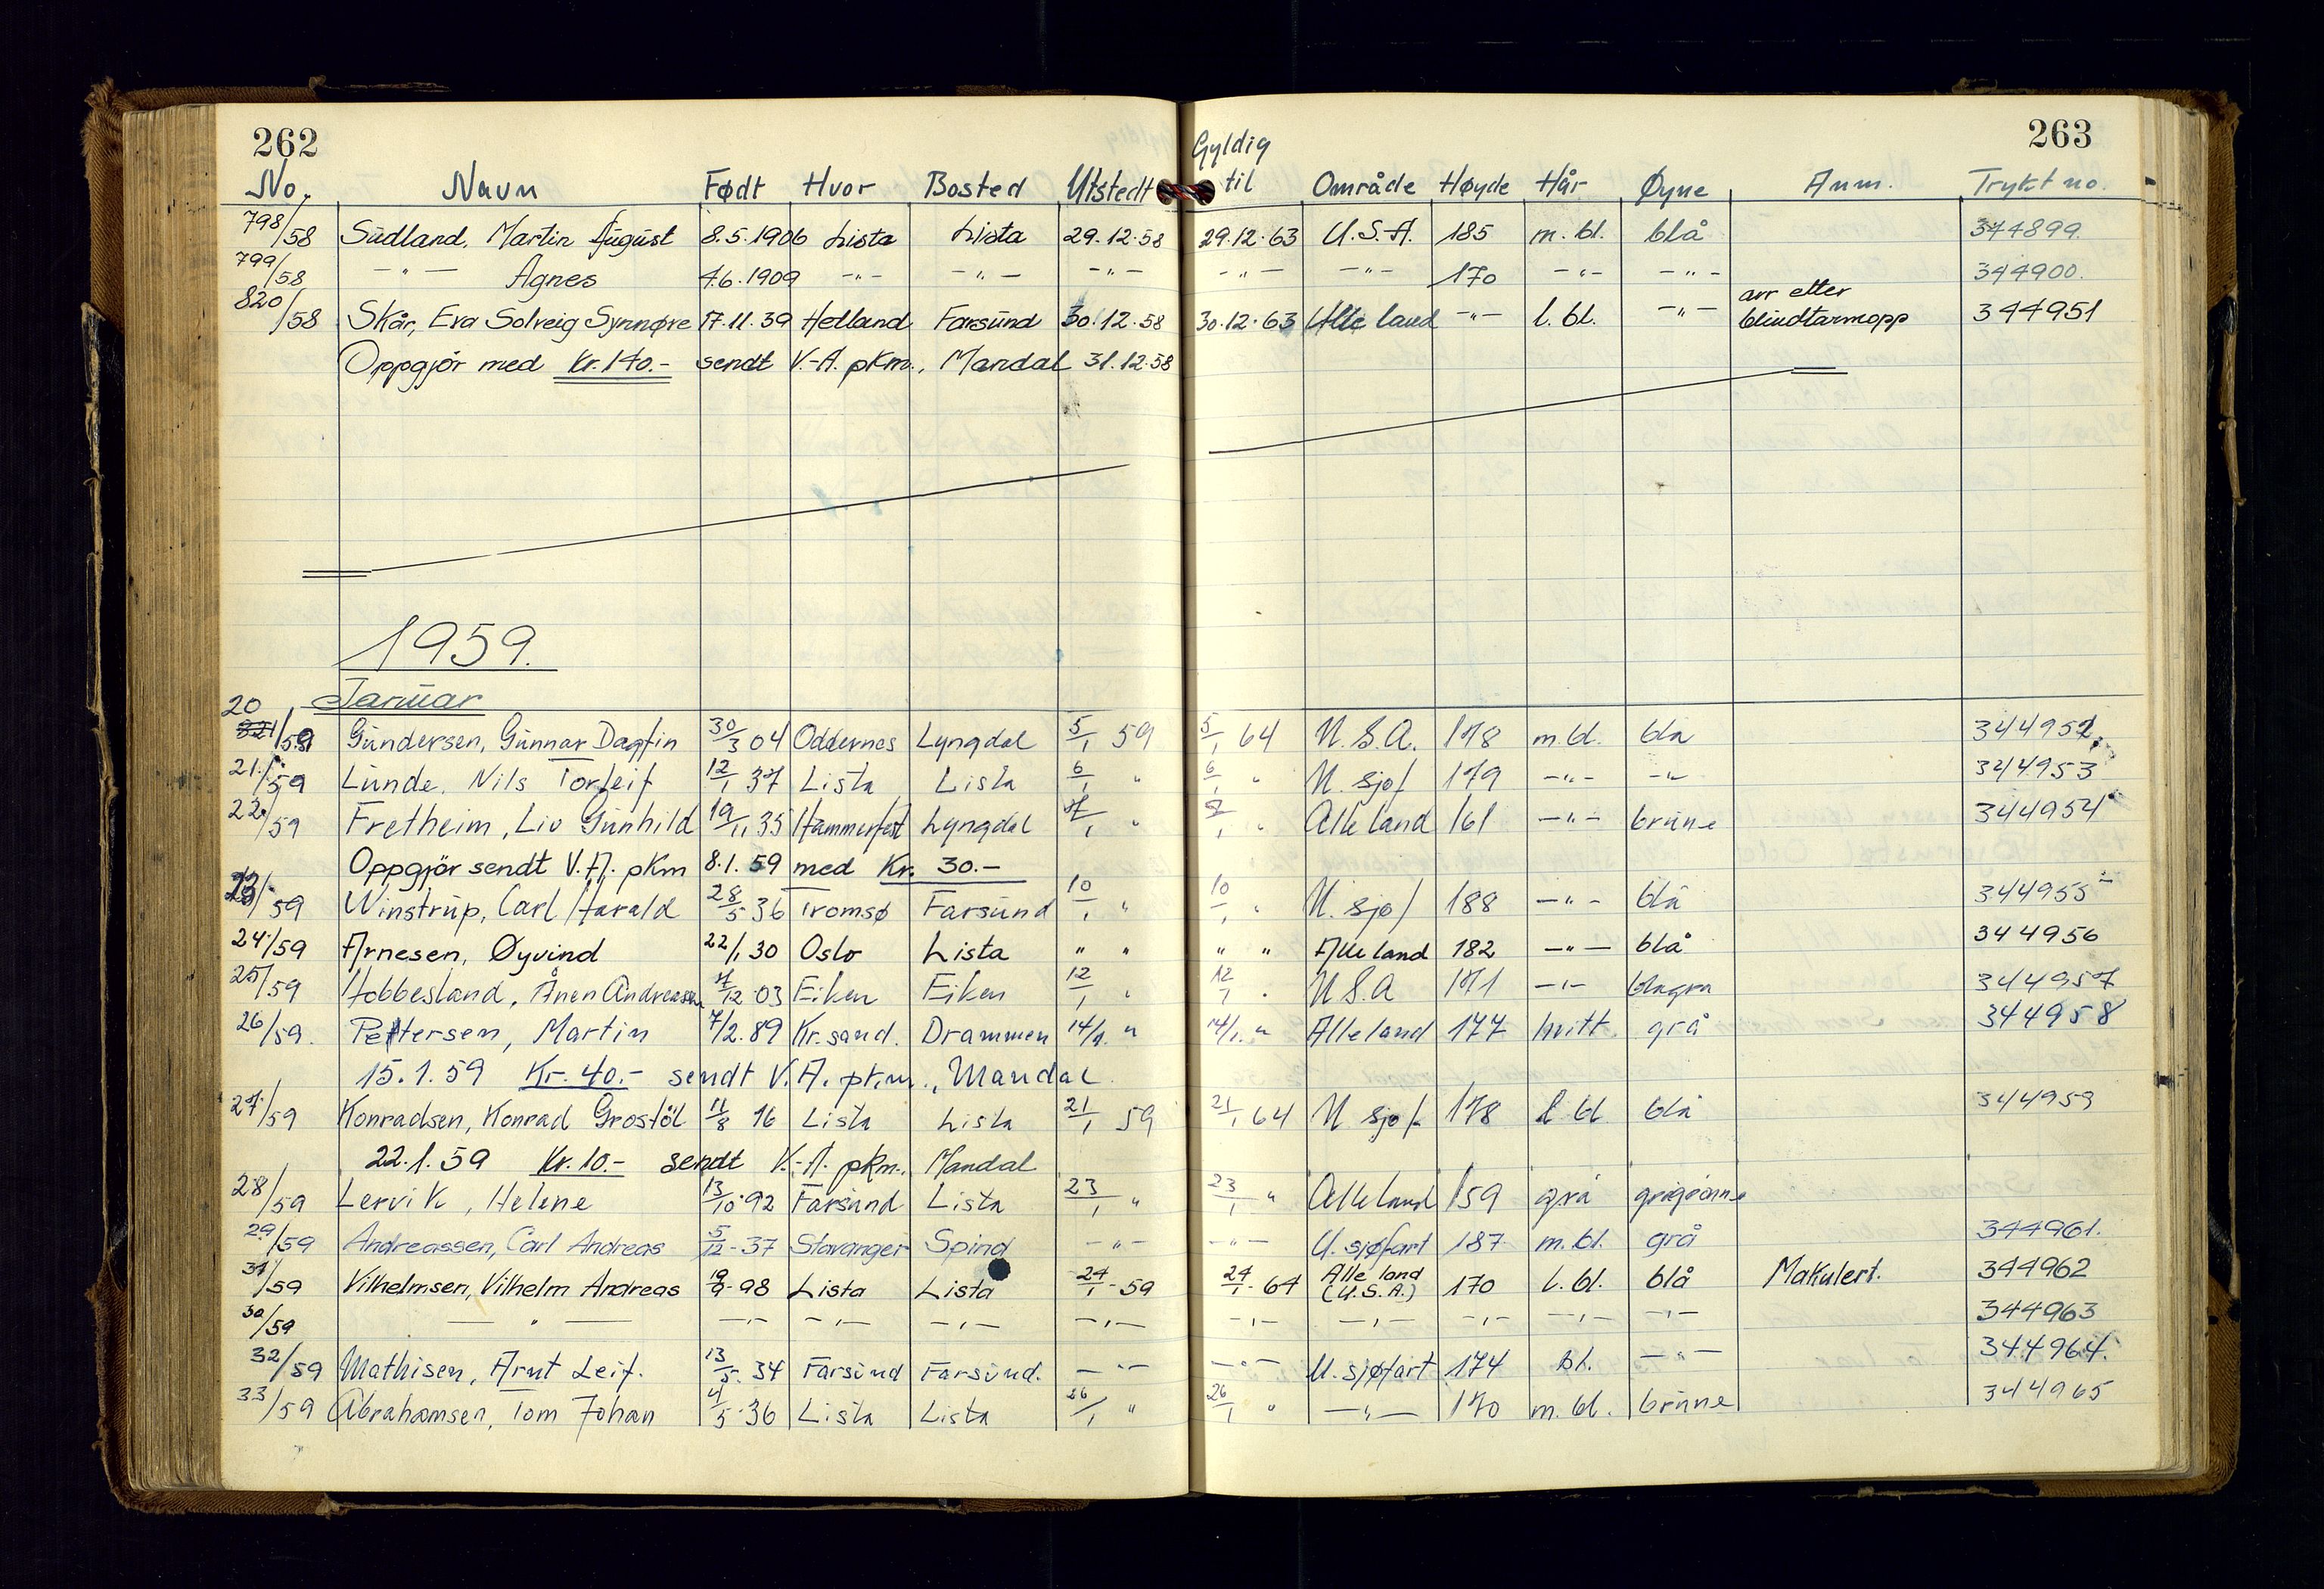 262
263
No. Navn Født Hvor Bosted Utstedt Gyldig til Område Høyde Hår Øyne Anm. Trykt no.
798/58 Sudland, Martin August 8.5.1906 Lista Lista 29.12.58 29.12.63 U.S.A. 185 m. bl. blå 344899.
799/58 -"- Agnes 4.6.1909 -"- -"- -"- -"- -"- 170 -"- -"- 344900.
820/58 Skår, Eva Solveig Synnøve 17.11.39 Helland Farsund 30.12.58 30.12.63 Alle land -"- l. bl. -"- arr etter blindtarmopp 344951
Oppgjör med Kr. 140.- sendt V.-A. pkm., Mandal 31.12.58
1959.
Januar
20/59 Gundersen, Gunnar Dagfin 30/3 04 Oddernes Lyngdal 5/1 59 5/1 64 U.S.A. 178 m. bl. blå 344952.
21/59 Lunde, Nils Torleif 12/1 37 Lista Lista 6/1 " 6/1 " U. sjøf 179 -"- -"- 344953
22/59 Fretheim, Liv Gunhild 19/11 35 Hammerfest Lyngdal 7/1 " 7/1 " Alle land 161 -"- brune 344954
Oppgjör sendt V.A. pkm 8.1.59 med Kr. 30.-
23/59 Winstrup, Carl Harald 28/5 36 Tromsø Farsund 10/1 " 10/1 " U. sjøf 188 -"- blå 344955
24/59 Arnesen, Øyvind 22/1 30 Oslo Lista " " " " Alle land 182 -"- blå 344956
25/59 Hobbesland, Ånen Andreassen 7/12 03 Eiken Eiken 12/1 " 12/1 " U.S.A 171 -"- blågrå 344957
26/59. Pettersen, Martin 7/2.89 Kr.sand. Drammen 14/1. " 14/1. " Alle land 177 hvitt. grå 344958
15.1.59 Kr. 40.- sendt V.A. pkm., Mandal
27/59 Konradsen, Konrad Grostöl 11/8 16 Lista Lista 21/1 59 21/1 64 U sjøf. 178 l bl blå 344959
22.1.59 Kr. 10.- sendt V.-A. pkm., Mandal
28/59 Lervik, Helene 13/10 92 Farsund Lista 23/1 " 23/1 " Alle land 159 grå grågrønne
29/59 Andreassen, Carl Andreas 5/12-37 Stavanger Spind -"- -"- U. sjøfart 187 m. bl. grå 344961.
31/59 Vilhelmsen, Vilhelm Andreas 19/9-98 Lista Lista 24/1-59 24/1-64 Alle land (U.S.A.) 170 l. bl. blå Makulert. 344962
30/59 -"- -"- -"- -"- -"- -"- -"- -"- -"- -"- 344963
32/59 Mathisen, Arnt Leif. 13/5. 34 Farsund Farsund. -"- -"- U. sjøfart 174 bl. -"- 344964.
33/59 Abrahamsen, Tom Johan 4/5 36 Lista Lista 26/1 " 26/1 " -"- 170 m. bl. brune 344965